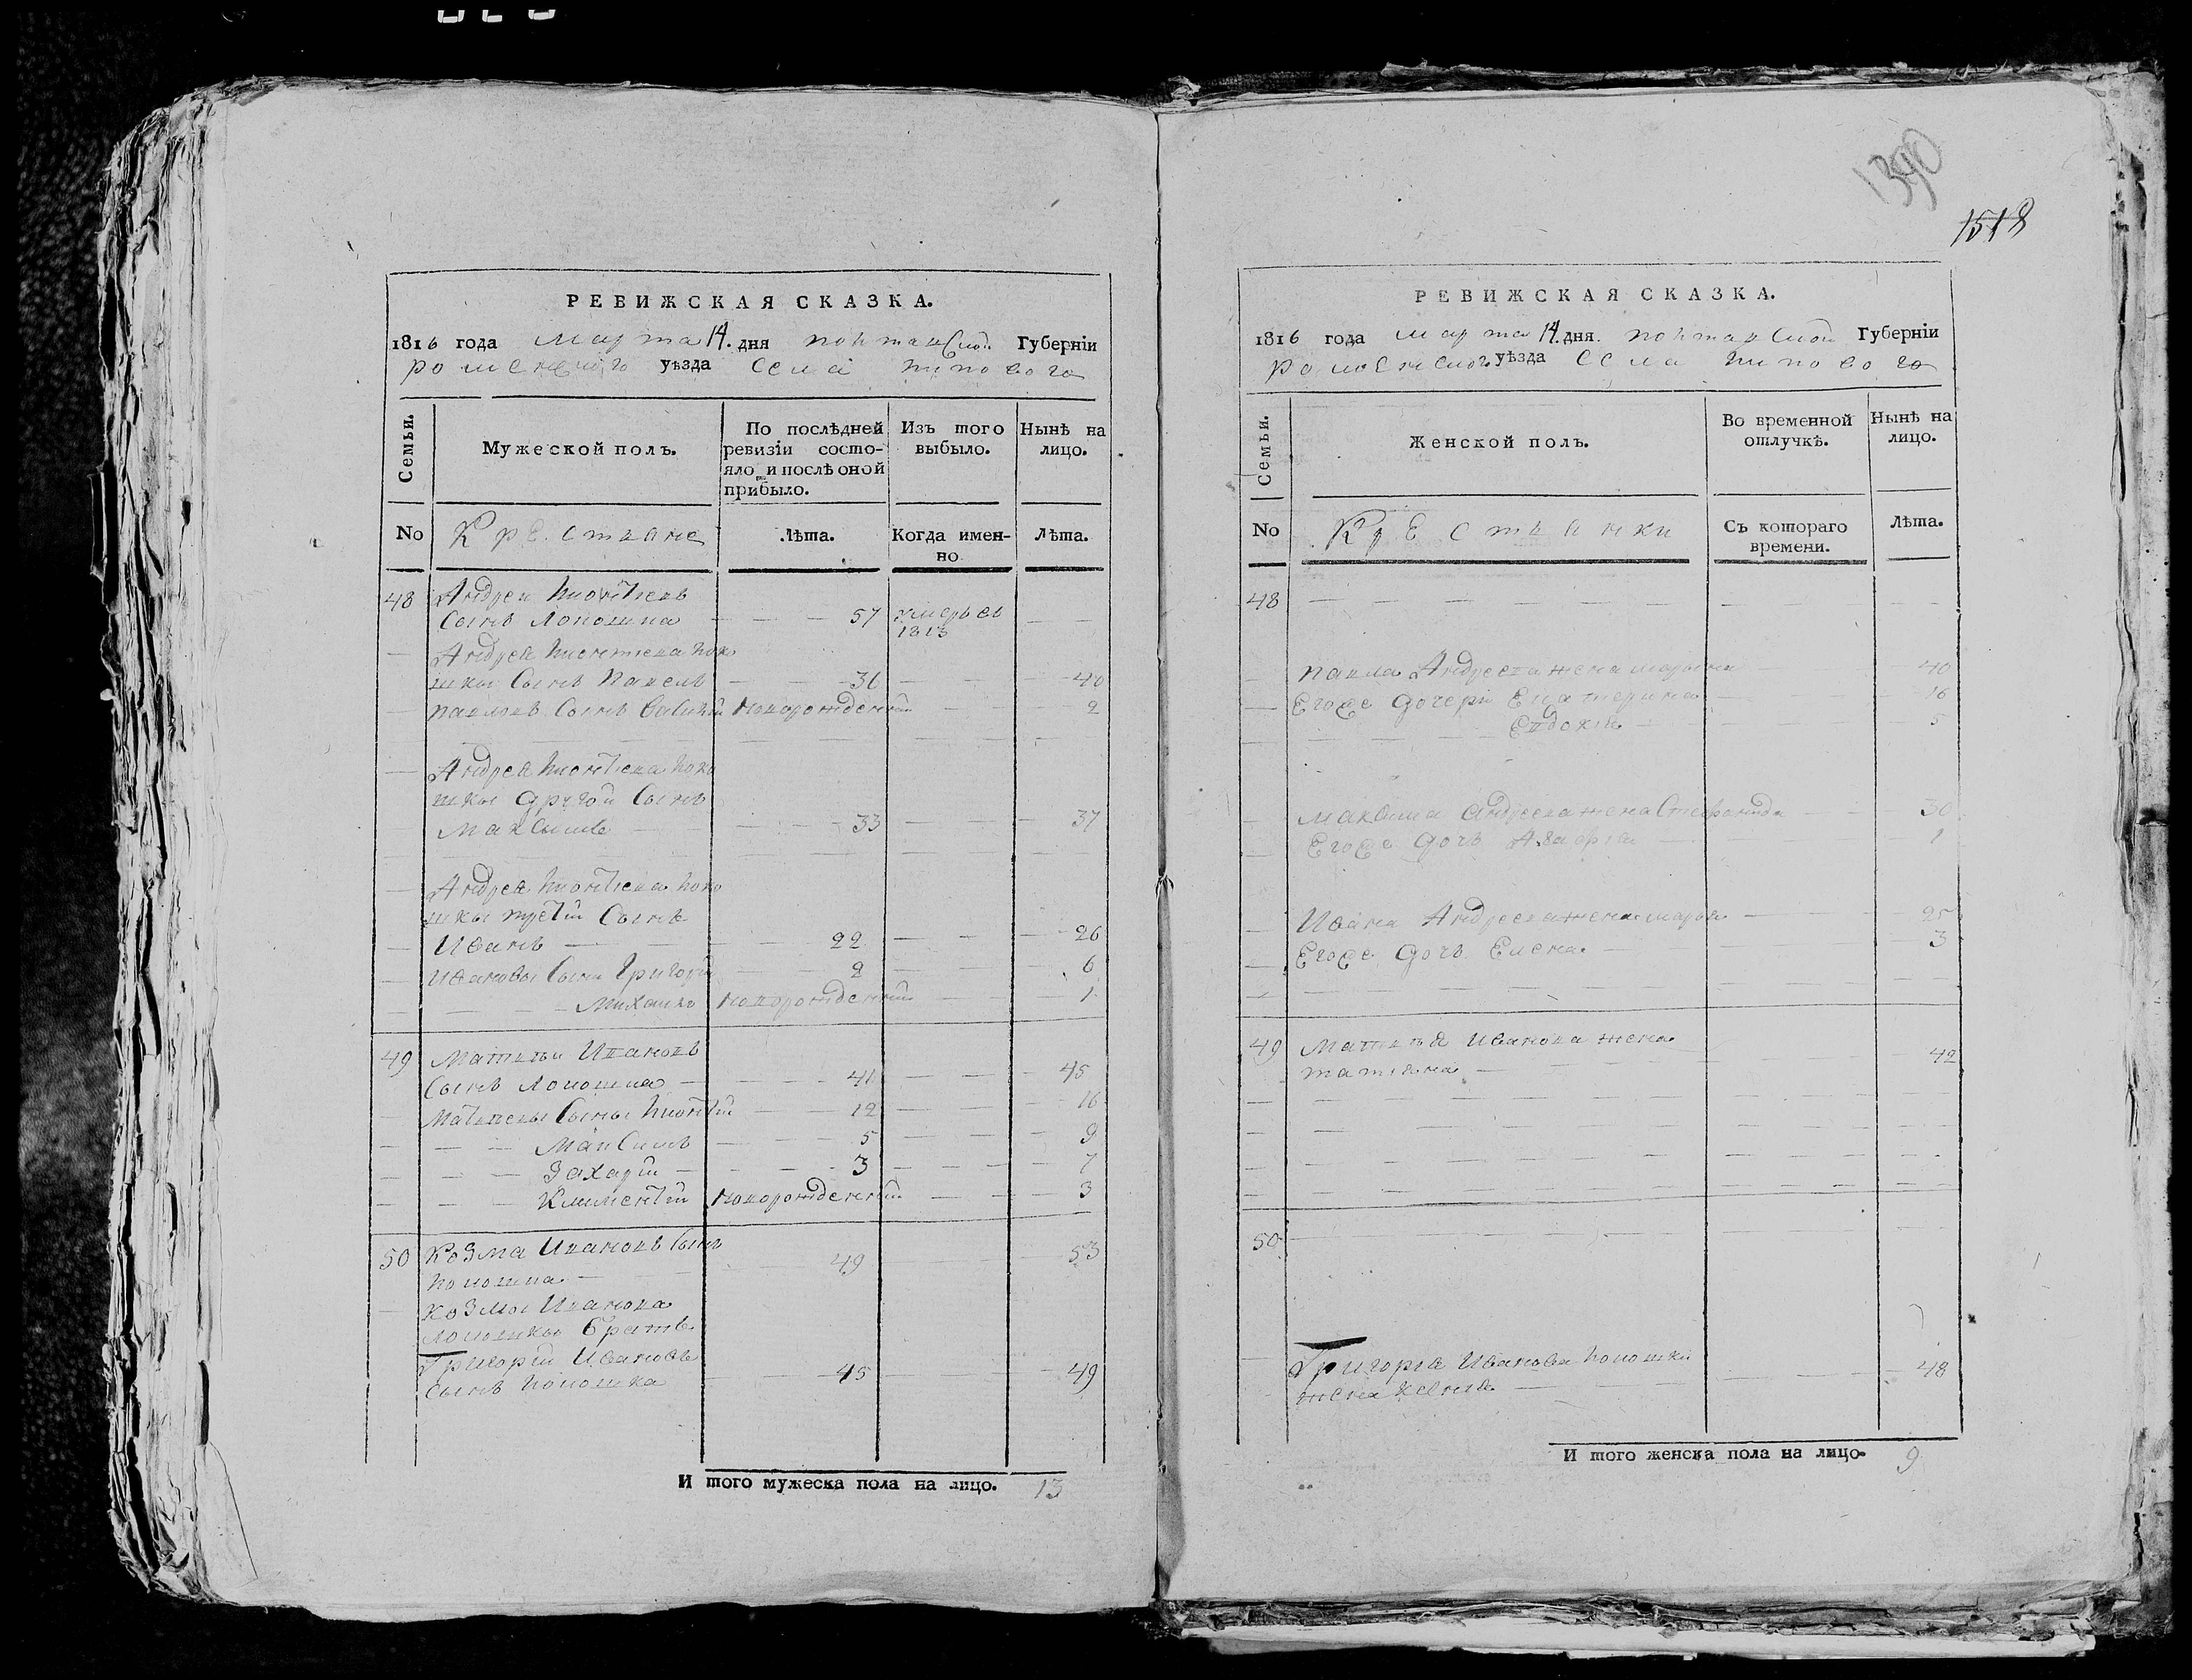 1390
1518
РЕВИЖСКАЯ СКАЗКА.
1816 года марта 14. дня полтавской Губерніи
роменского уѣзда села липового
Семьи.
Мужеской полъ.
По послѣдней ревизіи состояло и послѣ оной прибыло.
Изъ того выбыло.
Нынѣ на лицо.
No Крестяне Лѣта. Когда именно. Лѣта.
48 Андреи леонтіевъ
сынъ Локошка 57 умеръ въ
1813
Андрея леонтіева локо
шки сынъ Павелъ 36 40
павловъ сынъ Василій новорожденній 2
Андрея леонтіева локо
шки другой сынъ
Максимъ 33 37
Андрея леонтіева локо
шки третій сынъ
Иванъ 22 26
Ивановы сыни Григорій 2 6
Михаило новорожденній 1
49 Матвѣи Ивановъ
сынъ Локошка 41 45
Матвеевы сыны леонтій 12 16
Максимъ 5 9
Захарій 3 7
Климентій новорожденній 3
50 Козма Ивановъ сынъ
локошка 49 53
козмы Иванова
локошки братъ
Григорій Ивановъ
сынъ локошка 45 49
И того мужеска пола на лицо. 13
РЕВИЖСКАЯ СКАЗКА.
1816 года марта 14. дня. полтавской Губерніи
роменского уѣзда села липового
Семьи.
Женской полъ.
Во временной отлучкѣ.
Нынѣ на лицо.
No Крестянки Съ котораго времени. Лѣта.
48
павла Андреева жена 40
Егоже дочери Екатерина 16
Евдокія 5
Максима Андреева жена 30
Егоже дочь Агафія 1
Ивана Андреева жена марья 25
Егоже дочь Елена 3
49 Матвѣя Иванова жена
татіяна 42
50
Григорія Иванова локошки
жена ксенія 48
И того женска пола на лицо 9